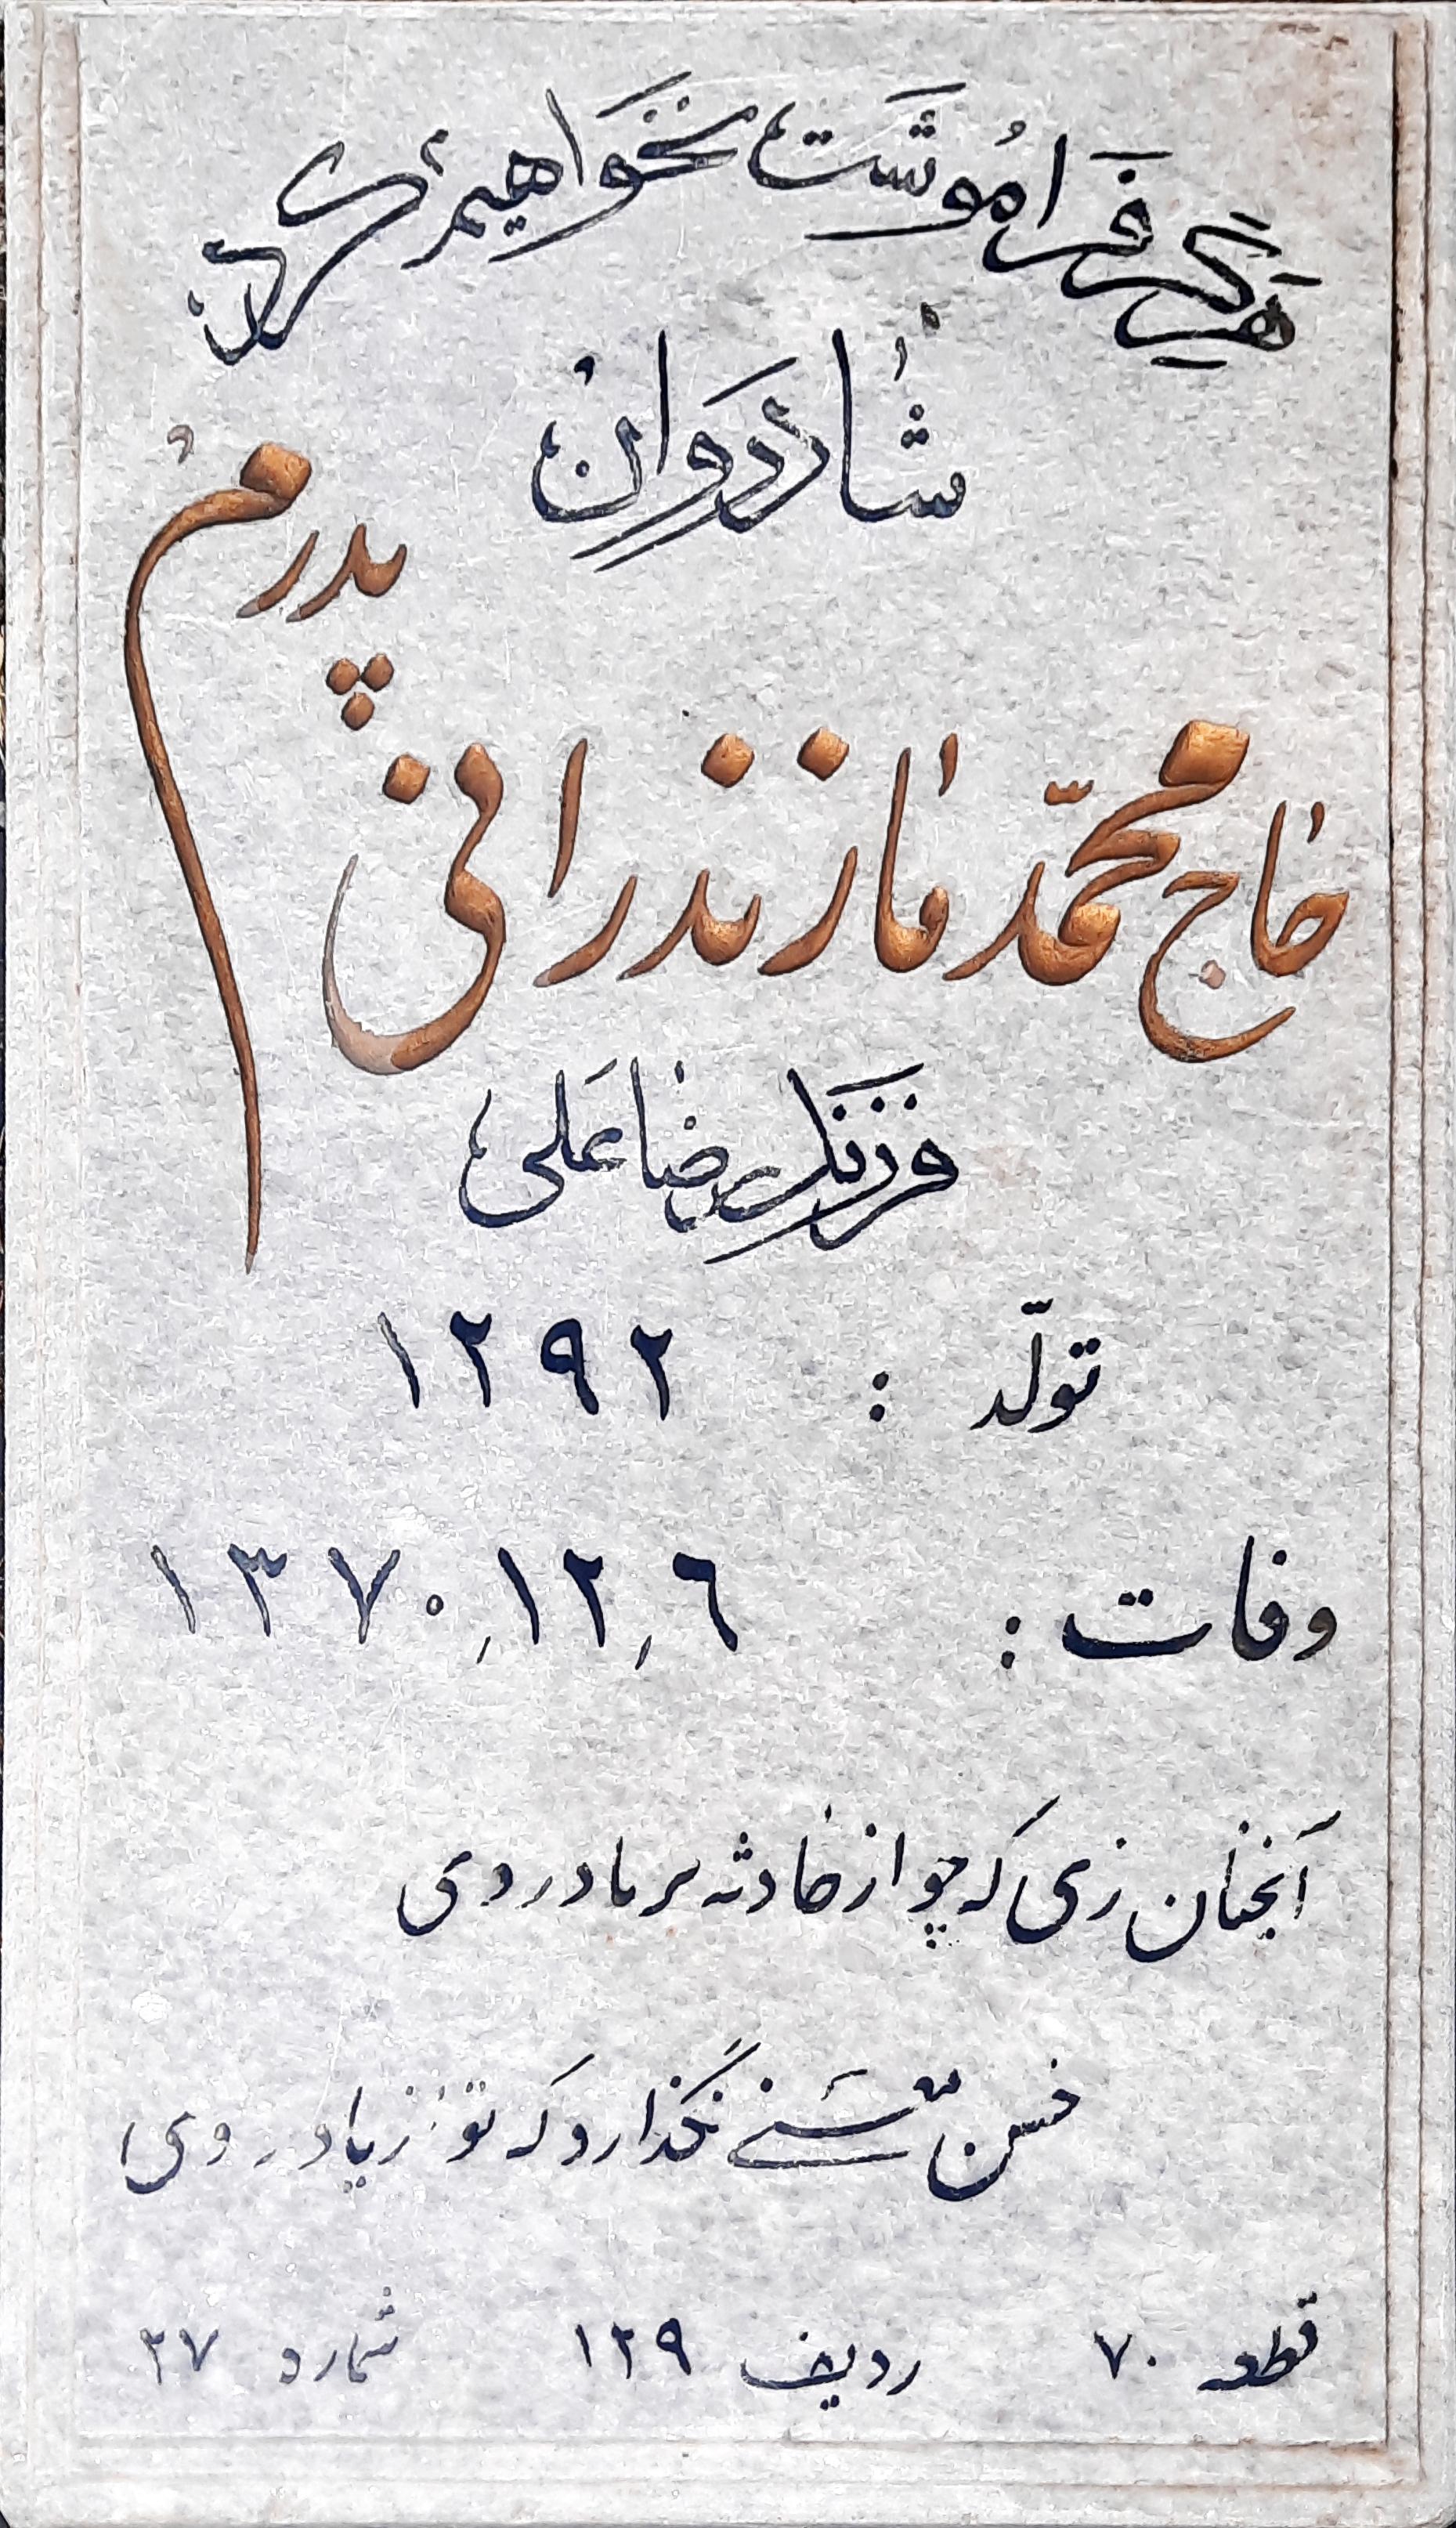 هرگز فراموشت نخواهیم کرد
شادروان
پدرم
حاج محمّد مازندرانی
فرزند رضاعلی
تولّد : ۱۲۹۲
وفات : ۱۳۷۰,۱۲,۶
آنچنان زی که چو از حادثه بر باد روی
حسن نگذارد که تو از یاد روی
قطعه ۷۰ ردیف ۱۲۹ شماره ۳۷